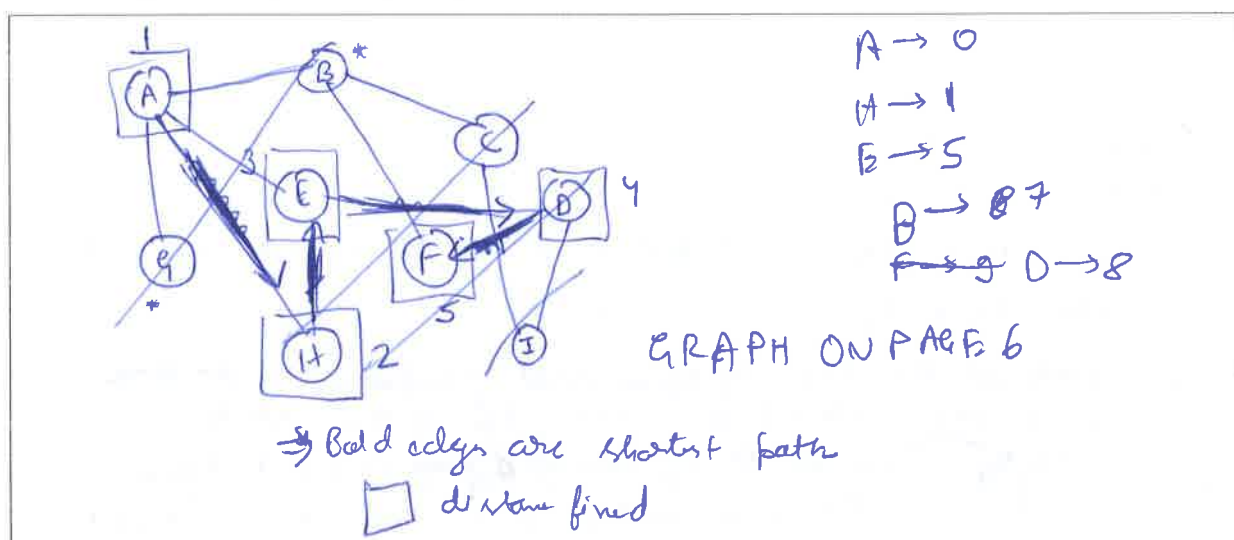 1
A B *
C
3 E D 4
G F
* 5
H 2 I
A → 0
H → 1
E → 5
B → 7
F → 9 D → 8
GRAPH ON PAGE 6
→ Bold edges are shortest path
distance fixed